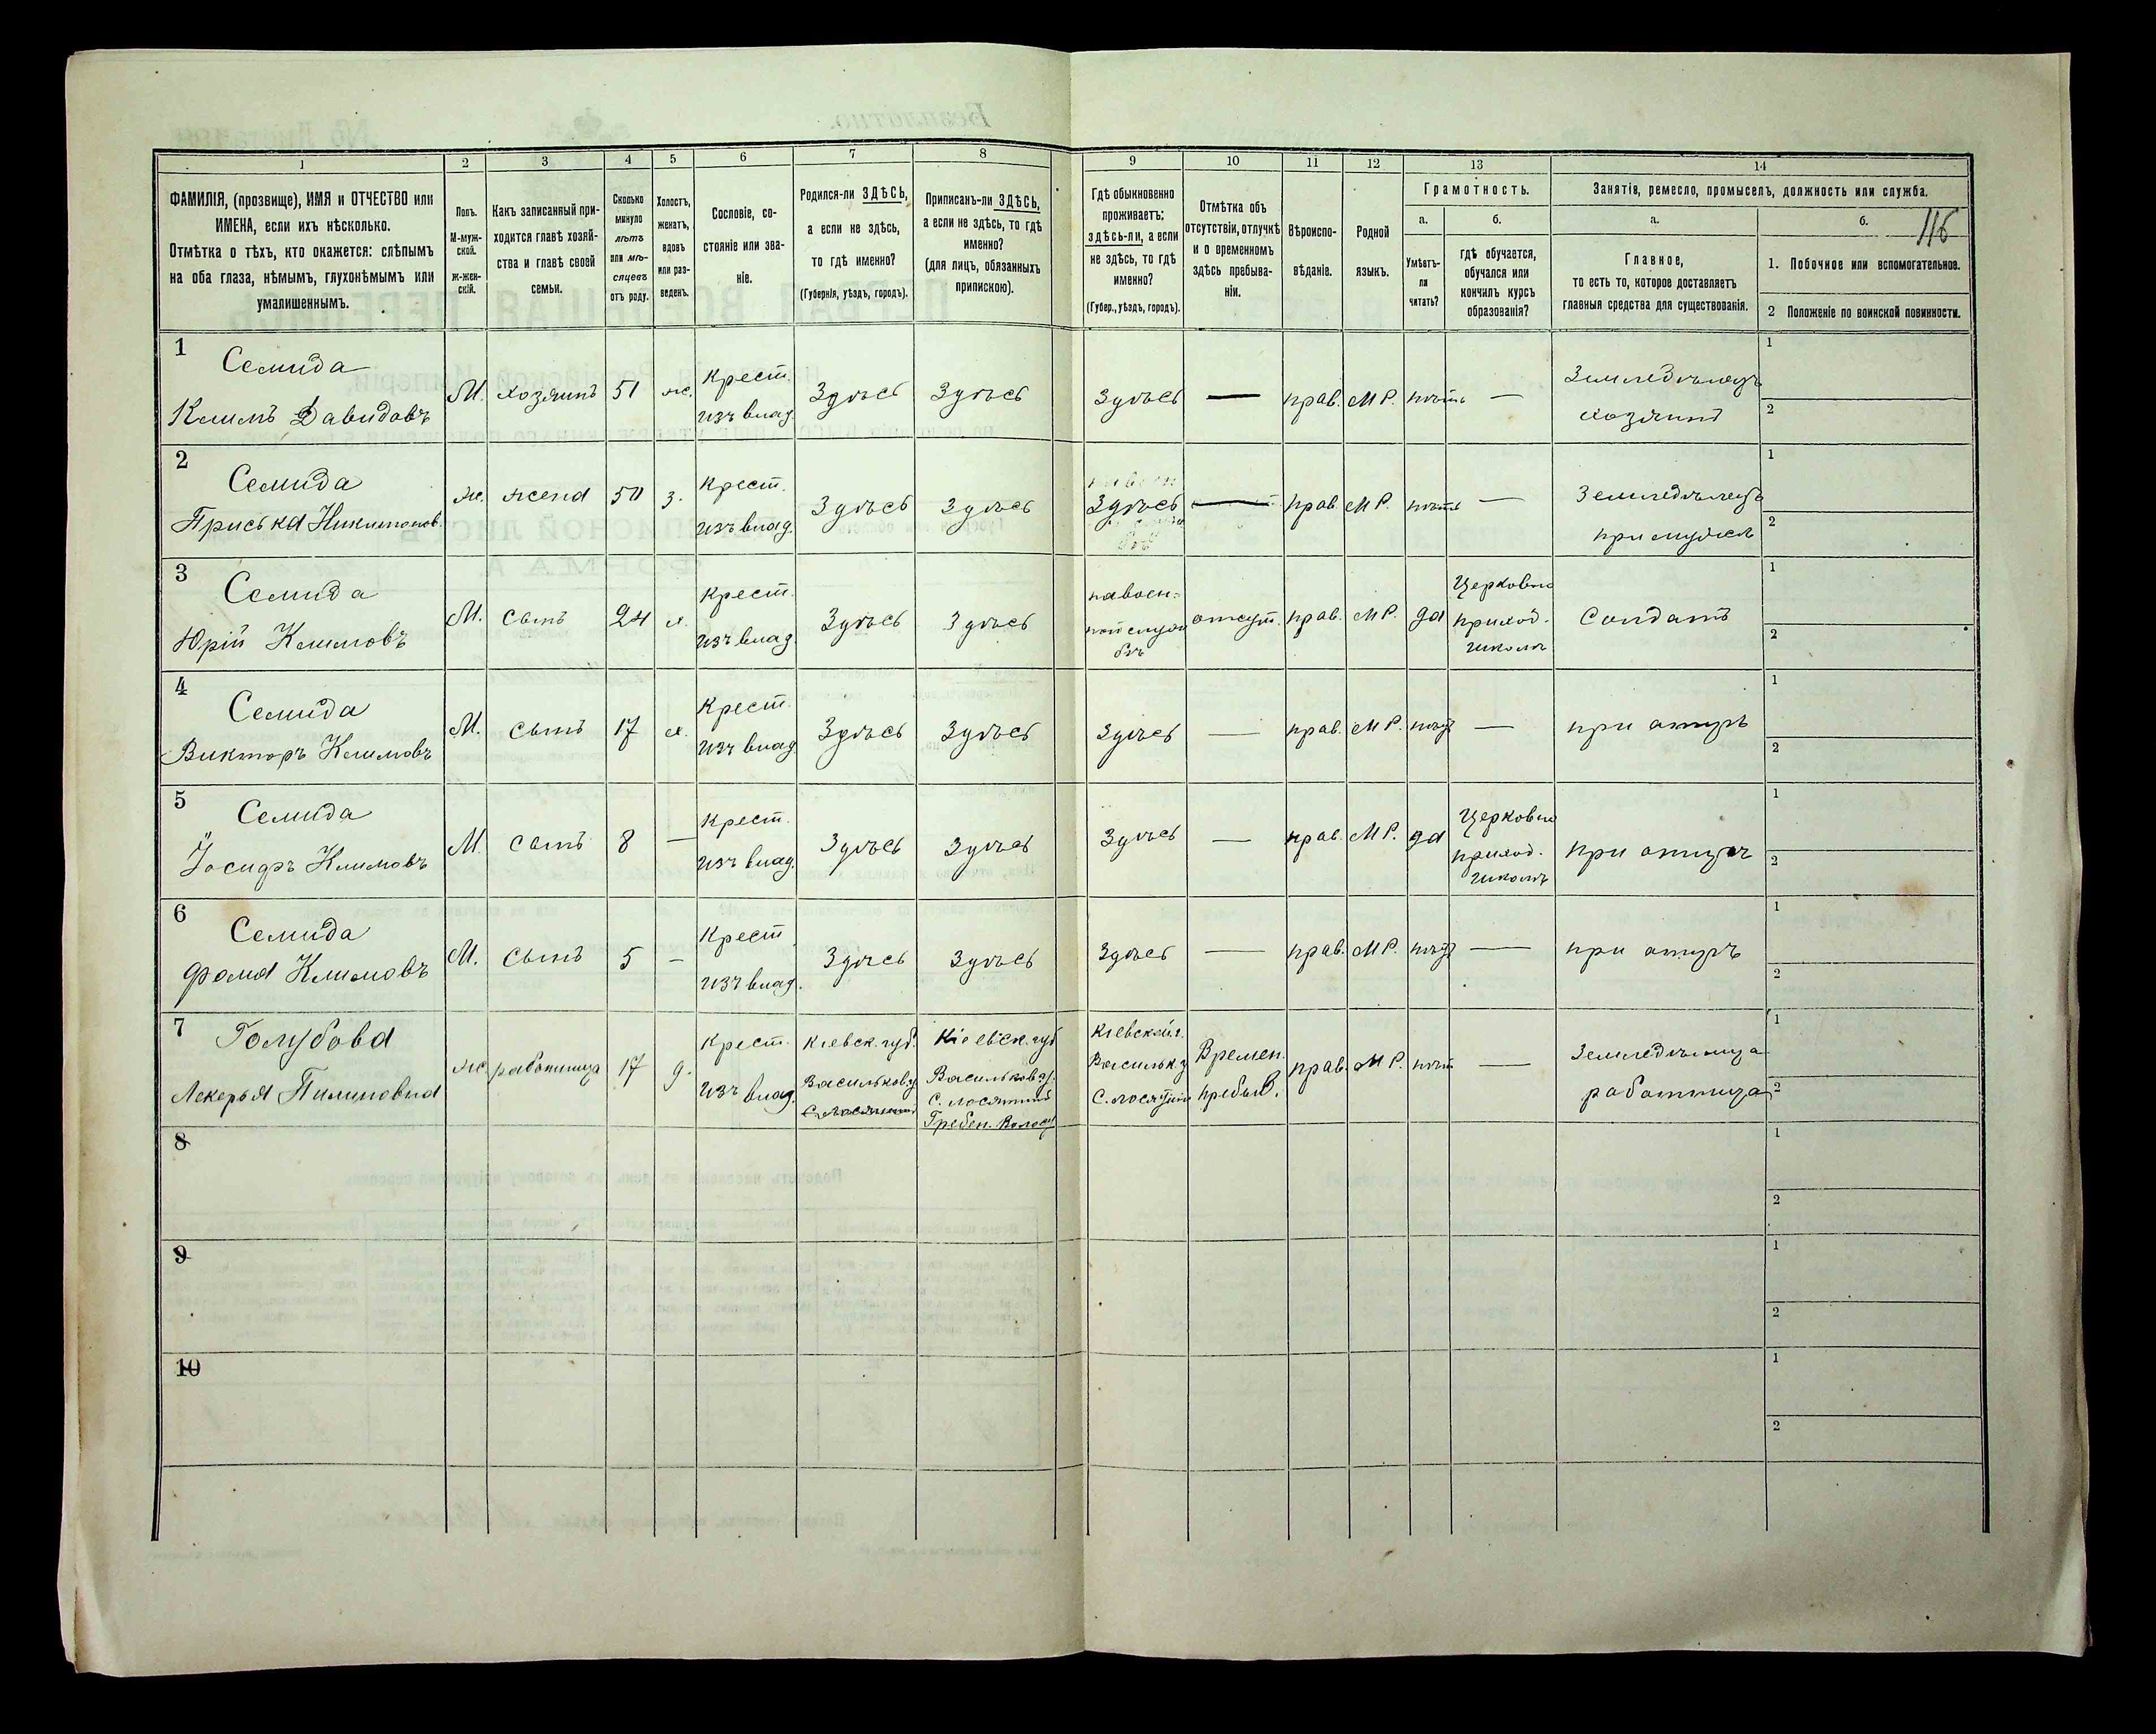 1 2 3 4 5 6 7 8 9 10 11 12 13 14
ФАМИЛІЯ, (прозвище), ИМЯ и ОТЧЕСТВО или
ИМЕНА, если ихъ нѣсколько.
Отмѣтка о тѣхъ, кто окажется: слѣпымъ
на оба глаза, нѣмымъ, глухонѣмымъ или
умалишеннымъ.
Полъ.
М-муж-
ской.
Ж-жен-
скій.
Какъ записанный при-
ходится главѣ хозяй-
ства и главѣ своей
семьи.
Сколько
минуло
лѣтъ
или мѣ-
сяцевъ
отъ роду.
Холостъ,
женатъ,
вдовъ
или раз-
веденъ.
Сословіе, со-
стояніе или зва-
ніе.
Родился-ли ЗДѢСЬ,
а если не здѣсь,
то гдѣ именно?
(Губернія, уѣздъ, городъ).
Приписанъ-ли ЗДѢСЬ,
а если не здѣсь, то гдѣ
именно?
(для лицъ, обязанныхъ
припискою).
Гдѣ обыкновенно
проживаетъ:
здѣсь-ли, а если
не здѣсь, то гдѣ
именно?
(Губер., уѣздъ, городъ).
Отмѣтка объ
отсутствіи, отлучкѣ
и о временномъ
здѣсь пребыва-
ніи.
Вѣроиспо-
вѣданіе.
Родной
языкъ.
Грамотность.
а.
Умѣетъ-
ли
читать?
б.
гдѣ обучается,
обучался или
кончилъ курсъ
образованія?
Занятія, ремесло, промыселъ, должность или служба.
а.
Главное,
то есть то, которое доставляетъ
главныя средства для существованія.
б.
116
1. Побочное или вспомогательное.
2 Положеніе по воинской повинности.
1
Семида
Климъ Давидовъ
М. хозяинъ 51 ж.
крест.
изъ влад.
Здѣсь Здѣсь Здѣсь — прав. М Р. нѣтъ —
Земледѣлецъ
хозяинъ
1
2
2
Семида
Приська Никитонов.
ж. жена 50 з.
крест.
изъ влад.
Здѣсь Здѣсь Здѣсь — прав. М Р. нѣтъ —
Земледѣлецъ
при мужѣ
1
2
3
Семида
Юрій Климовъ
М. сынъ 24 х.
крест.
изъ влад.
Здѣсь Здѣсь
на воен-
ной служ
бѣ
отсут. прав. М Р. да
Церковно
приход.
школѣ
Солдатъ
1
2
4
Семида
Викторъ Климовъ
М. сынъ 17 х.
крест.
изъ влад
Здѣсь Здѣсь Здѣсь — прав. М Р. нѣтъ —
при отцѣ
1
2
5
Семида
Іосифъ Климовъ
М. сынъ 8 —
крест.
изъ влад.
Здѣсь Здѣсь Здѣсь — прав. М Р. да
Церковно
приход.
школѣ
при отцѣ
1
2
6
Семида
Фома Климовъ
М. сынъ 5 —
крест
изъ влад.
Здѣсь Здѣсь Здѣсь — прав. М Р. нѣтъ —
при отцѣ
1
2
7
Голубова
Лекерья Пилиповна
ж. работница 17 д.
крест.
изъ влад.
Кіевск. губ.
Васильков. у.
С. Лосятинъ
Кіевск. губ
Васильков. у.
С. Лосятинъ
Гребен. Волост
Кіевской г.
Васильк. у
С. Лосятинъ
Времен.
пребыв.
прав. М Р. нѣт —
Земледѣлица
работница
1
2
8
1
2
9
1
2
10
1
2